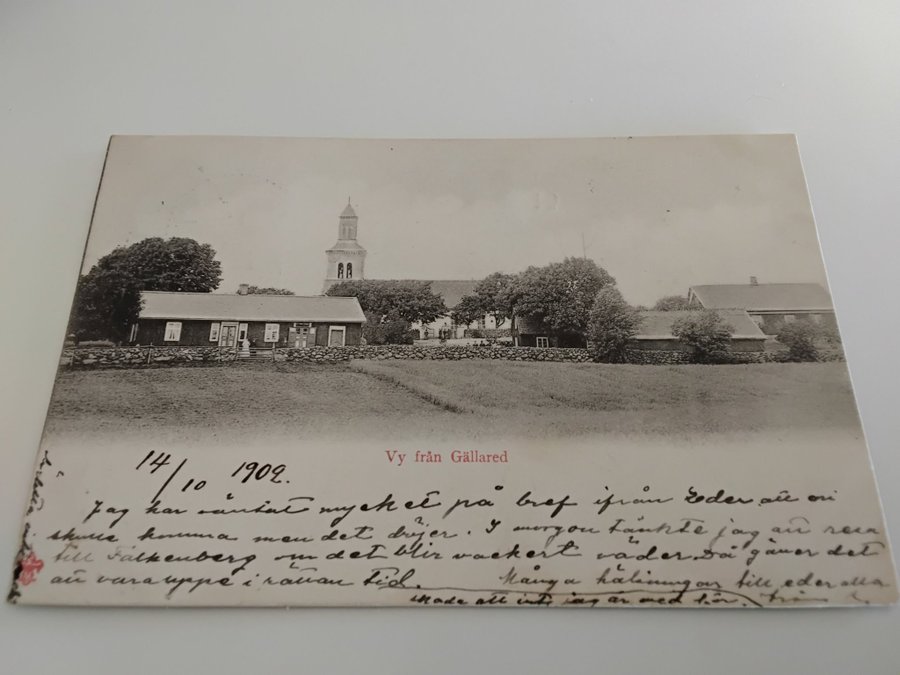 Vy från Gällared
14/10 1902.
Jag har väntat mycket på bref ifrån Eder att ni
skulle komma men det dröjer. I morgon tänkte jag att resa
till Falkenberg om det blir vackert väder. Då gäller det
att vara uppe i rättan tid. Många hälsningar till eder alla
att inte jag är med här. från